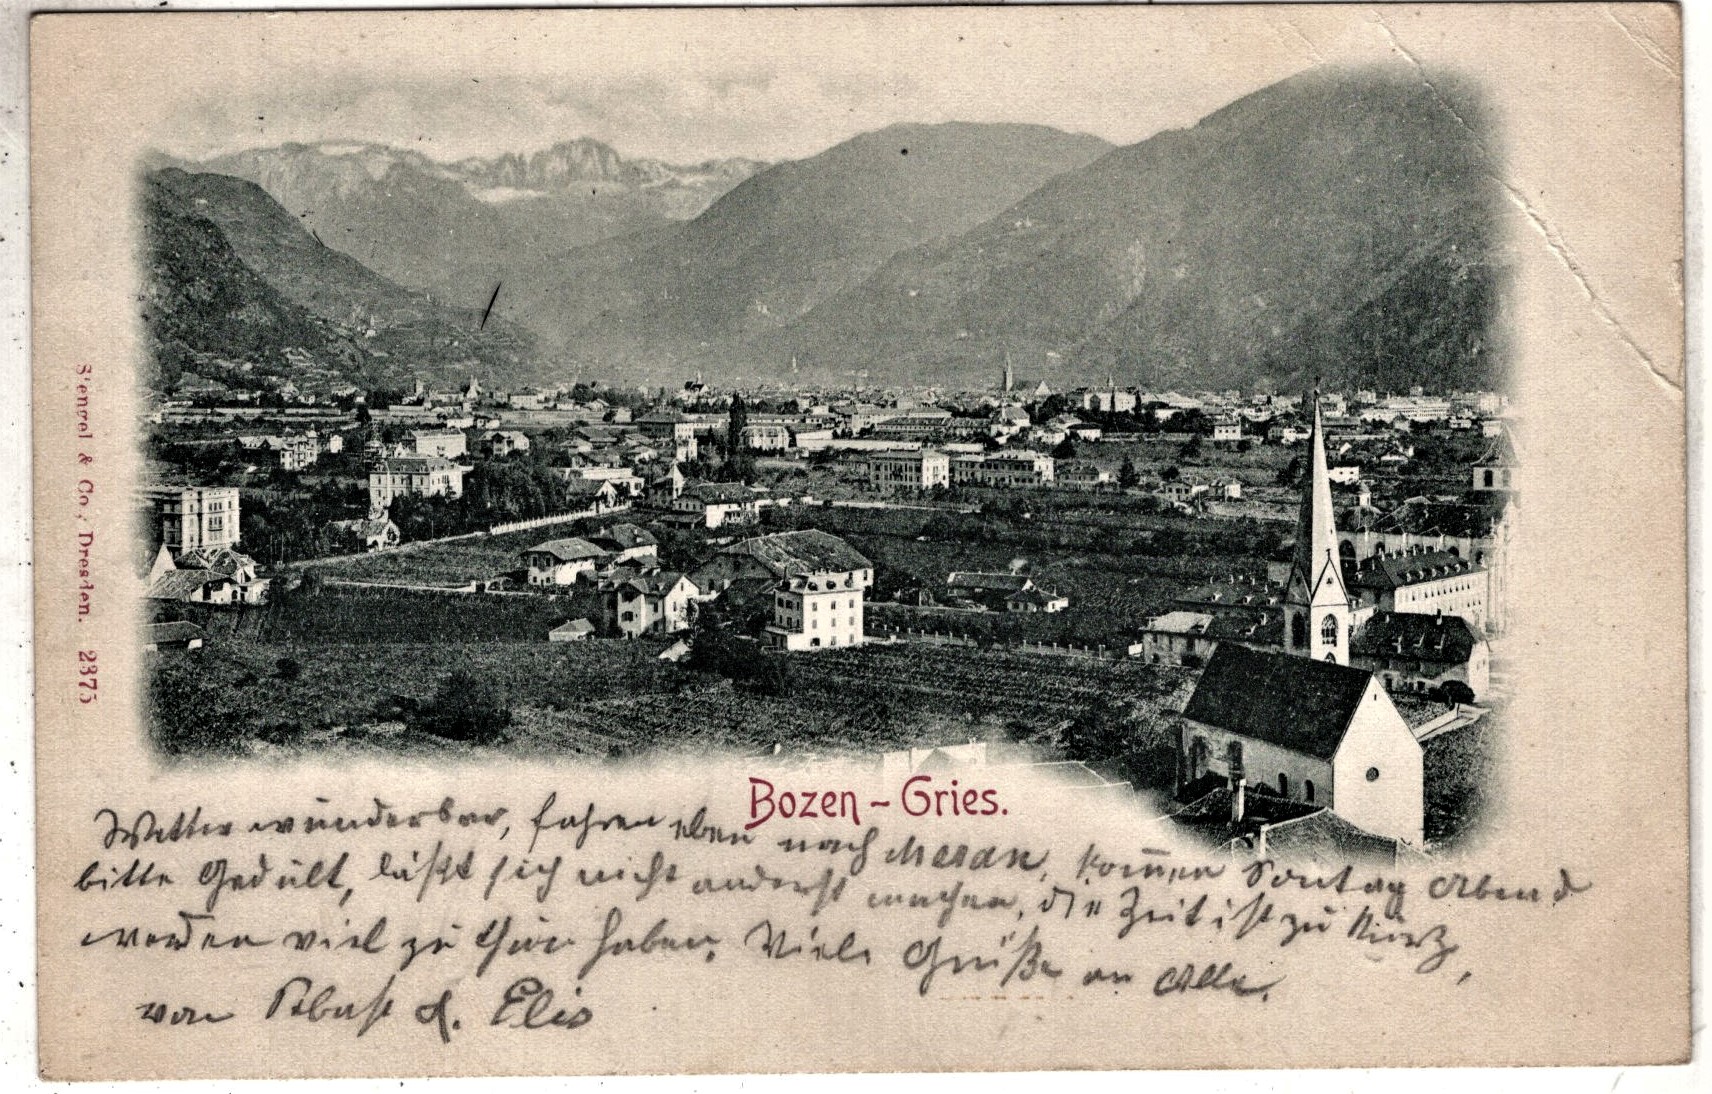 Stengel & Co., Dresden. 2375
Bozen - Gries.
Wetter wunderbar, fahren eben nach Meran, kom̅en Sontag Abend
bitte Gedult, läßt sich nicht anderst machen, die Zeit ist zu kurz,
werden viel zu thun haben. Viele Grüße an Alle.
von &. Elis